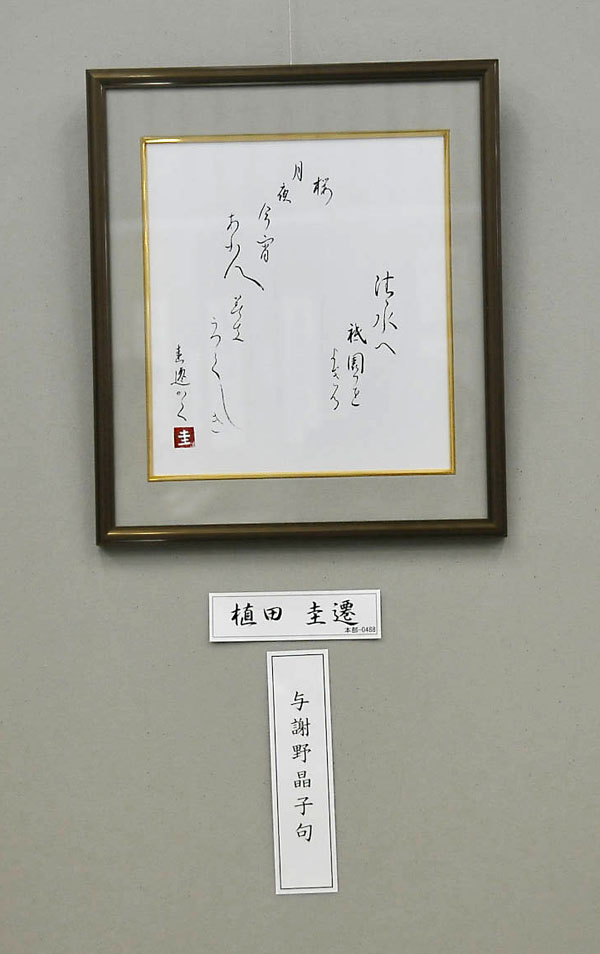 清水へ
祇園を
よぎる
桜
月
夜
今宵
あふ人
みな
うつくしき
圭遷かく
圭
植田 圭遷
本部-0488
与謝野晶子句